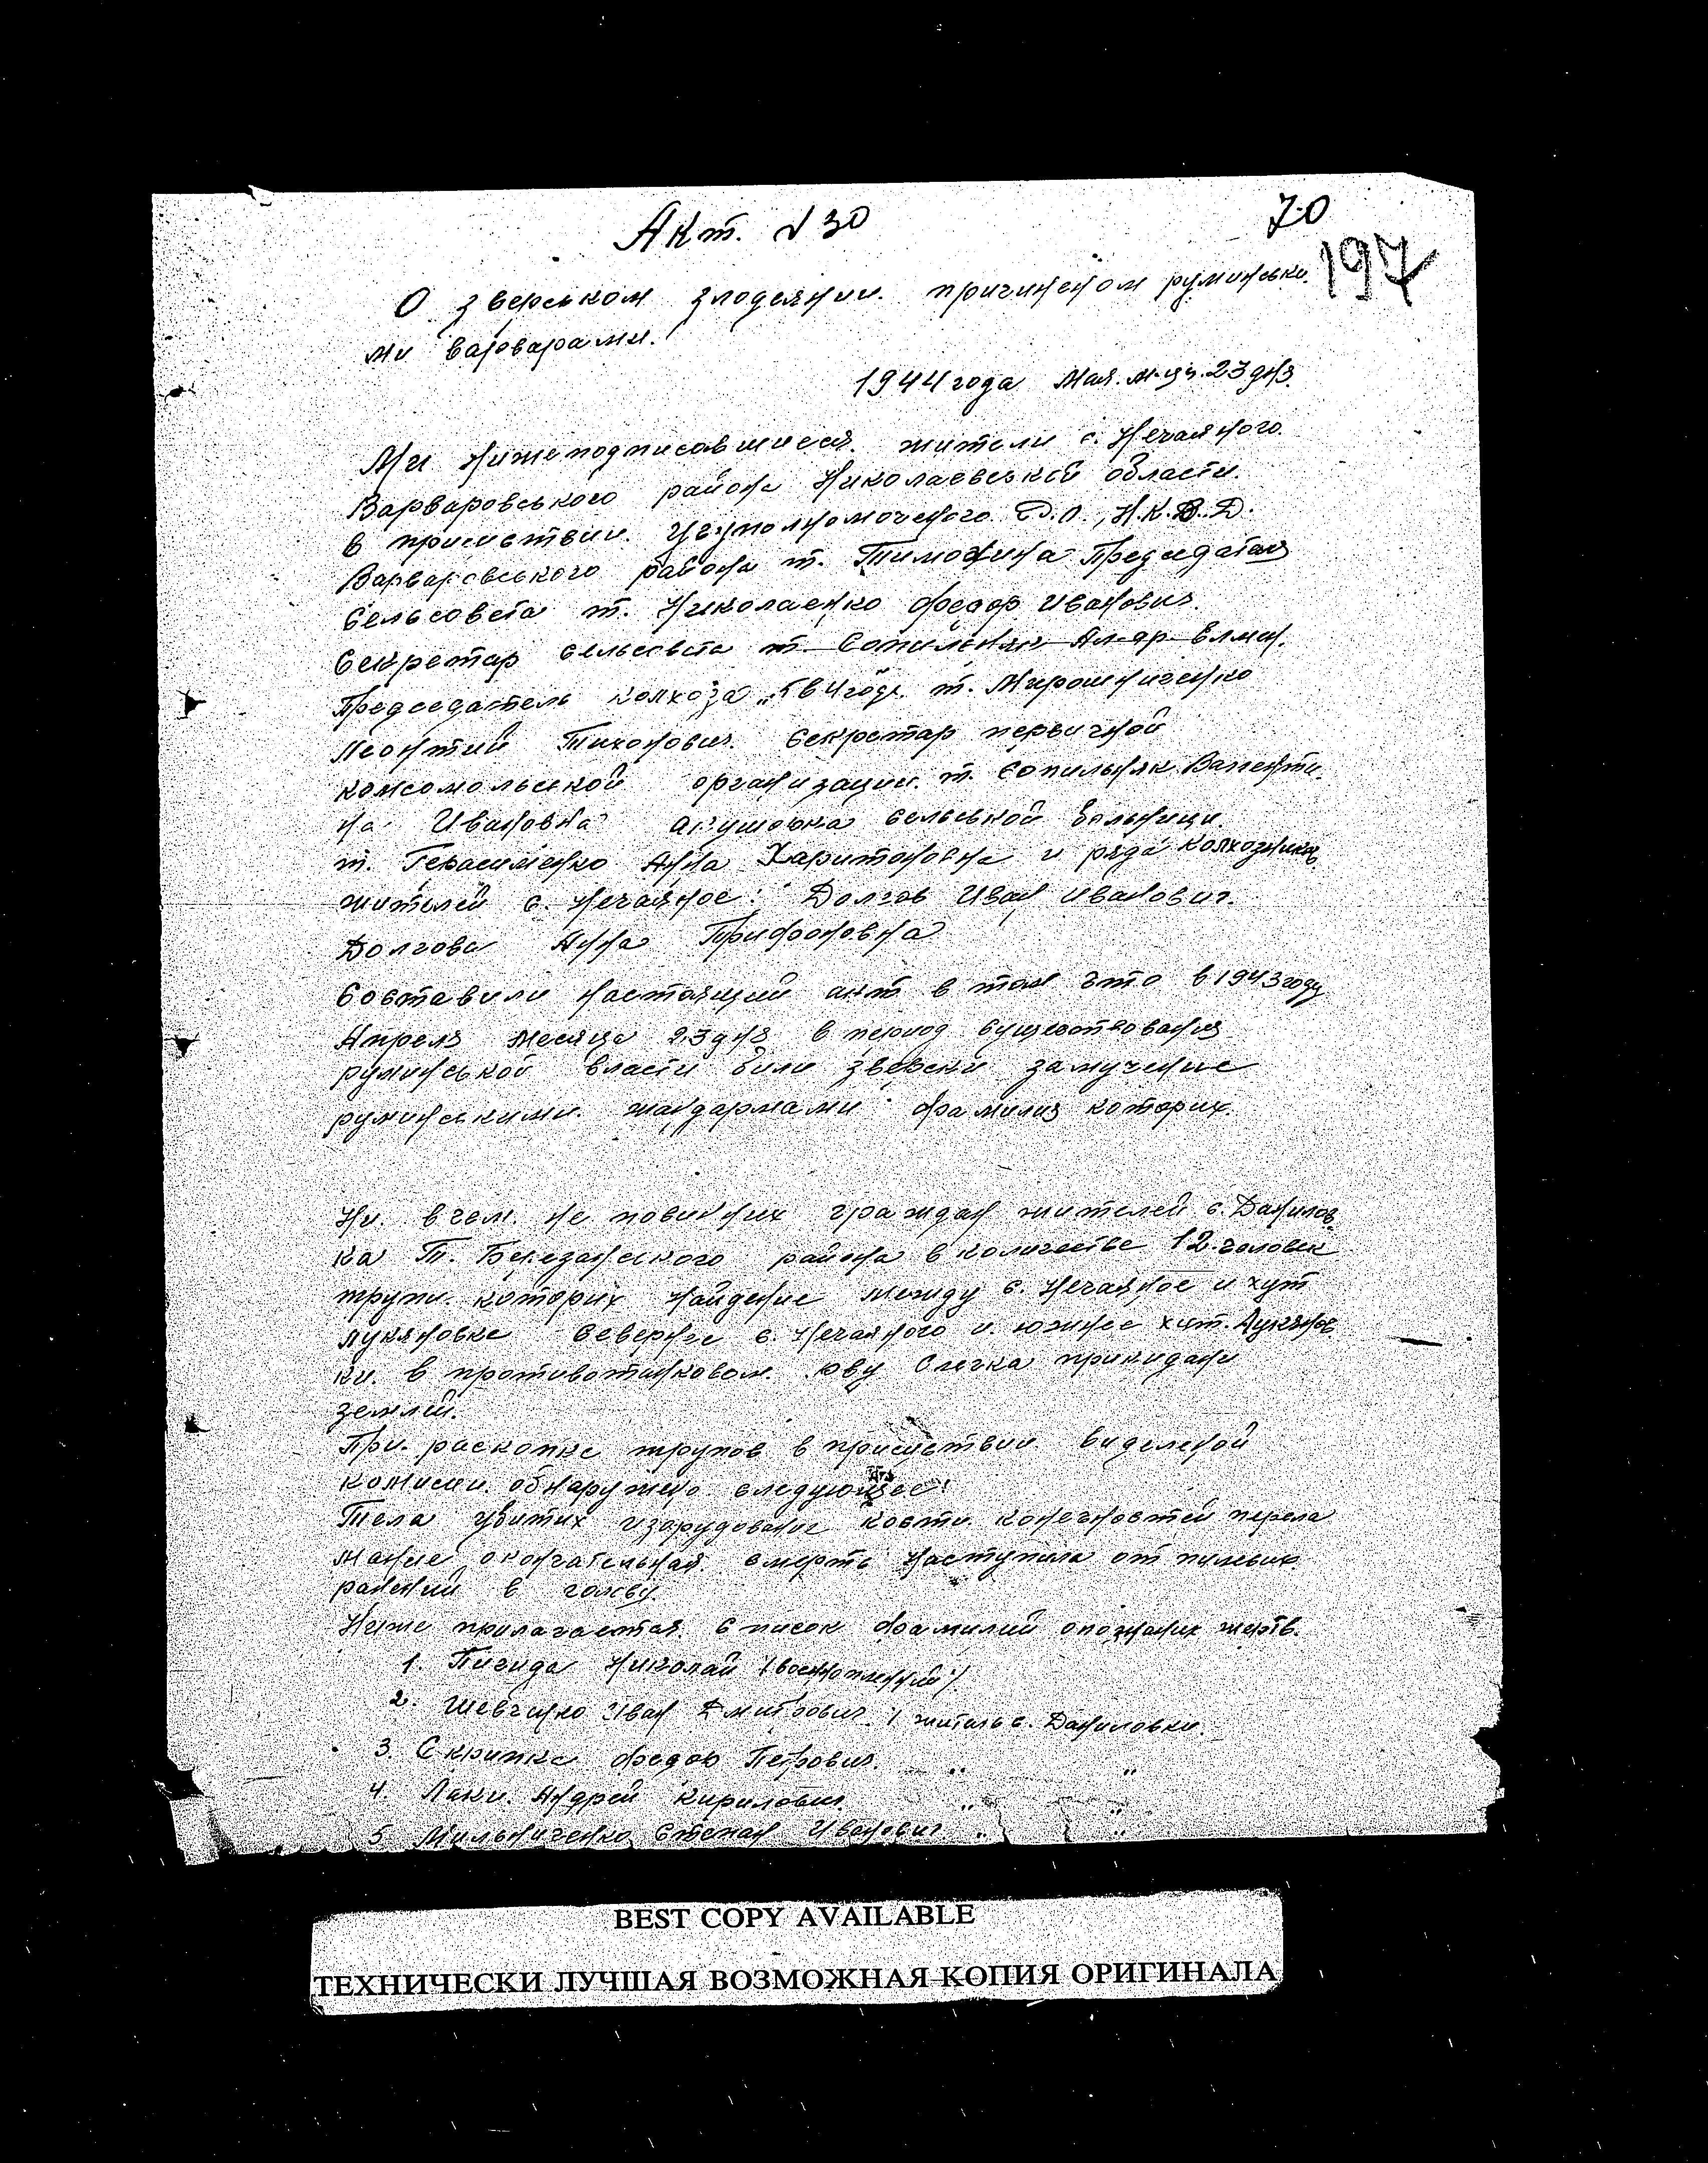 Акт. №30
70
197
О зверьском злодеянии. причиненом руминьски.
ми варварами.
1944 года Мая. м-ця. 23 дня.
Ми нижеподписавшиеся. жители с. Нечаяного.
Варваровського района Николаевськой области.
в присмствии. Р.О., Н.К.В.Д.
Варваровського района т. Тимохина Председателя
Сельсовета т. Николаенко Федор Иванович.
Секретар сельсовета т. Сопильняк Ал-др Елман.
Председатель колхоза „5 в 4 года. т. Мирошниченко
Леонтий Тихонович. Секретар первичной
комсомольской организации. т. Сопильняк Валенти.
на Ивановна акушорка сельськой больници
т. Герасименко Анна Харитоновна и ряда колхозников
жителей с. Нечаяное: Долгов Иван Иванович.
Долгова Анна Трифоновна
Составили настоящий акт в том что в 1943 году
Апреля месяца 23 дня в период существования
руминьской власти били зверски замучение
руминьскими. жандармами фамилия которих.
Ни. в чем. не повинних граждан жителей с. Данилов
ка Т. Березанского района в количестве 12. человек
трупи. которих найдение между с. Нечаяное и хут
Лукяновка севернее с. Нечаяного и. южнее хут. Лукянов
ки. в противотанковом. рву Слегка прикидани
землей.
При. раскопке трупов в присмствии виделеной
комисии. обнаружено следующее:
Тела убитих изорудование кости. конечностей перела
мание, окончательная. смерть наступила от пулевих
ранений в голову.
Ниже прилагается. список фамилий опознаних жертв.
1. Пигида Николай (военнопленний).
2. Шевченко Иван Дмитрович / житель с. Даниловки.
3. Скрипка Федор Петрович. „ „
4. Лаки. Андрей Кирилович. „ „
5 Мильниченко Степан Иванович „ „
BEST COPY AVAILABLE
ТЕХНИЧЕСКИ ЛУЧШАЯ ВОЗМОЖНАЯ КОПИЯ ОРИГИНАЛА